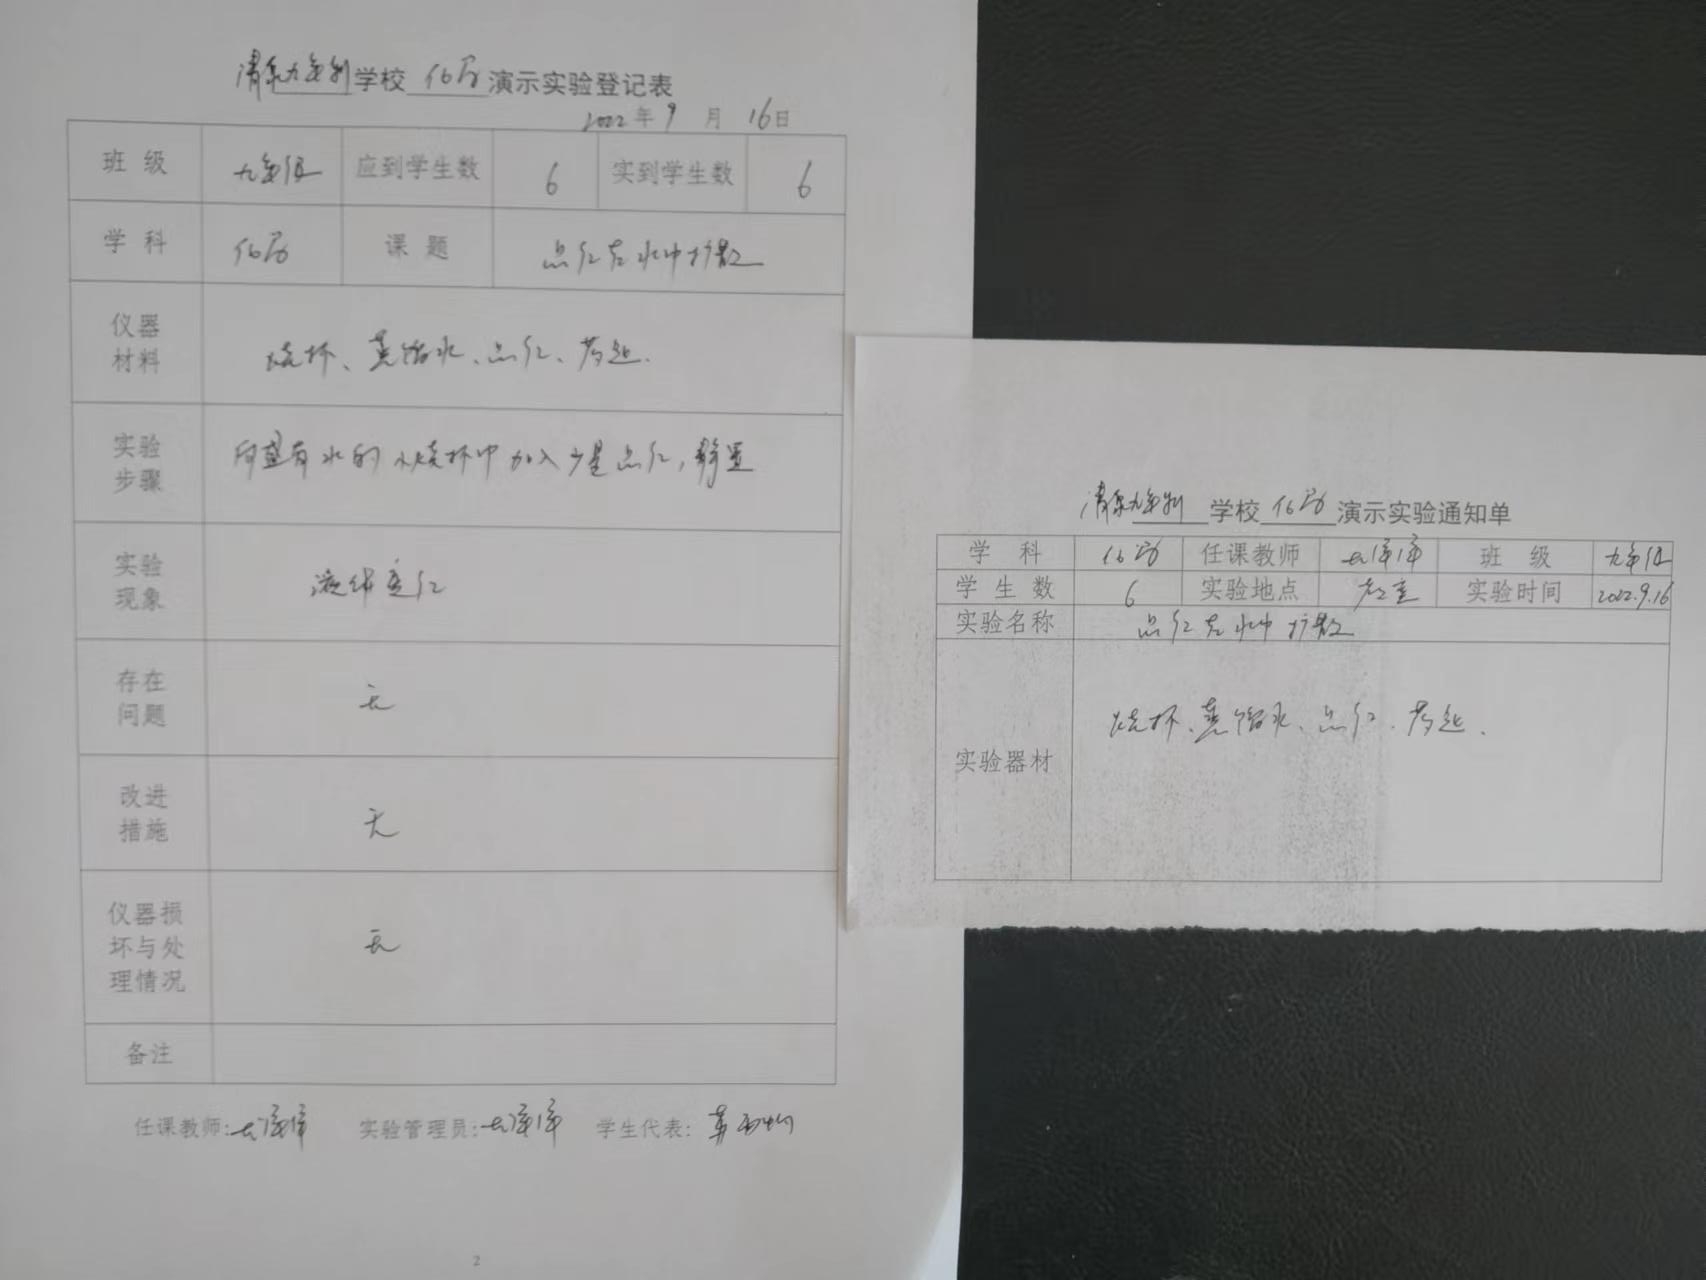 清泉九年制学校 化学 演示实验登记表
2022年9月16日
班级 九年级 应到学生数 6 实到学生数 6
学科 化学 课题 品红在水中扩散
仪器
材料
烧杯、蒸馏水、品红、药匙.
实验
步骤
向盛有水的小烧杯中加入少量品红,静置
实验
现象
液体变红
存在
问题
无
改进
措施
无
仪器损
坏与处
理情况
无
备注
任课教师: 实验管理员: 学生代表:
2
清泉九年制学校 化学 演示实验通知单
学科 化学 任课教师 班级 九年级
学生数 6 实验地点 教室 实验时间 2022.9.16
实验名称 品红在水中扩散
实验器材 烧杯、蒸馏水、品红、药匙.